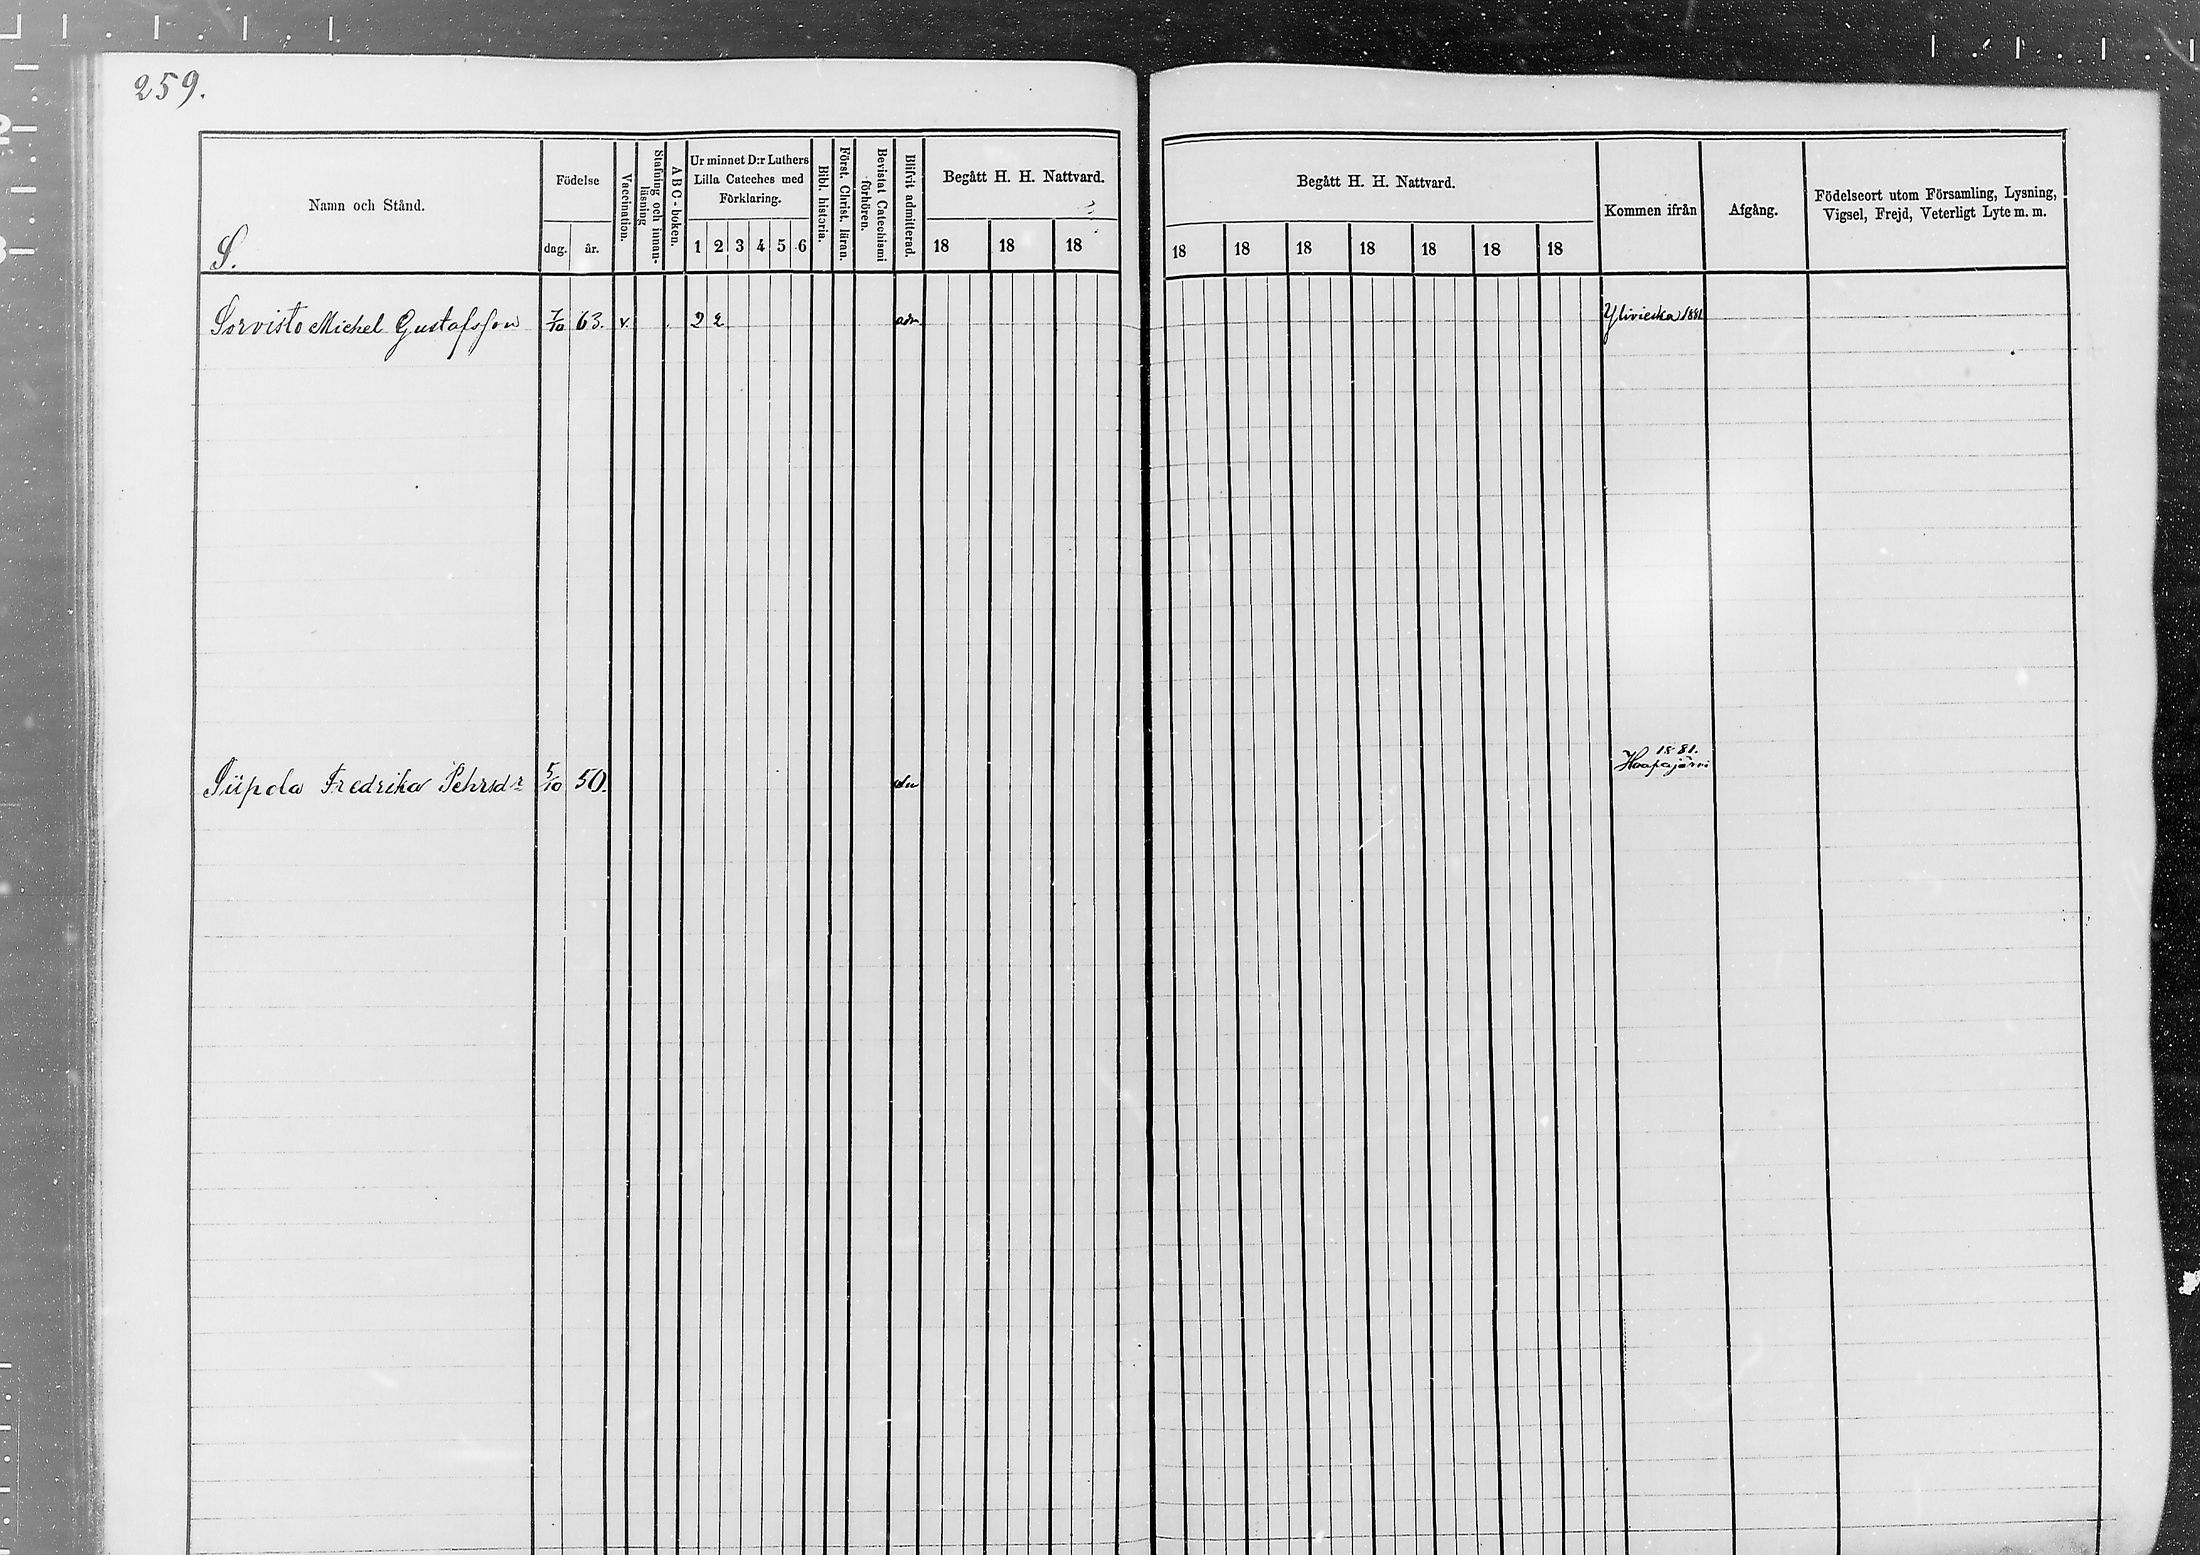 259.
Namn och Stånd.
S.
Födelse
dag. år.
Vaccination.
Stafning och innan-
läsning
ABC-boken.
Ur minnet D:r Luthers
Lilla Cateches med
Förklaring.
1 2 3 4 5 6
Bibl. historia.
Först. Christ. läran.
Bevistat Catechismi
förhören.
Blifvit admitterad.
Begått H. H. Nattvard.
18 18 18
Begått H. H. Nattvard.
18 18 18 18 18 18 18
Kommen ifrån
Afgång.
Födelseort utom Församling, Lysning,
Vigsel, Frejd, Veterligt Lyte m. m.
Sorvisto Michel Gustafsson 7/10 63. v. 2 2 adm Ylivieska 1881
1881.
Fredrika Pehrsdr 5/10 50. Haapajärvi